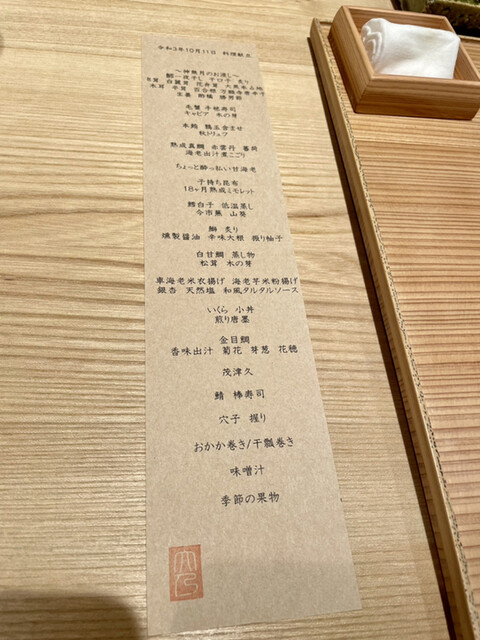 令和3年10月11日 料理献立
～神無月のお凌し～
毛蟹 手毬寿司
キャビア 木の芽
本鮪 鶏玉含ませ
秋トリュフ
熟成真鯛 赤雲丹
海老出汁煮こごり
ちょっと酔っ払い甘海老
子持ち昆布
18ヶ月熟成ミモレット
鱈白子 低温蒸し
今市蕪 山葵
鰤 炙り
燻製醤油 辛味大根 振り柚子
白甘鯛 蒸し物
松茸 木の芽
車海老米衣揚げ 海老芋米粉揚げ
銀杏 天然塩 和風タルタルソース
いくら 小丼
煎り唐墨
金目鯛
香味出汁 菊花 芽葱 花穂
茂津久
鯖 棒寿司
穴子 握り
おかか巻き/干瓢巻き
味噌汁
季節の果物